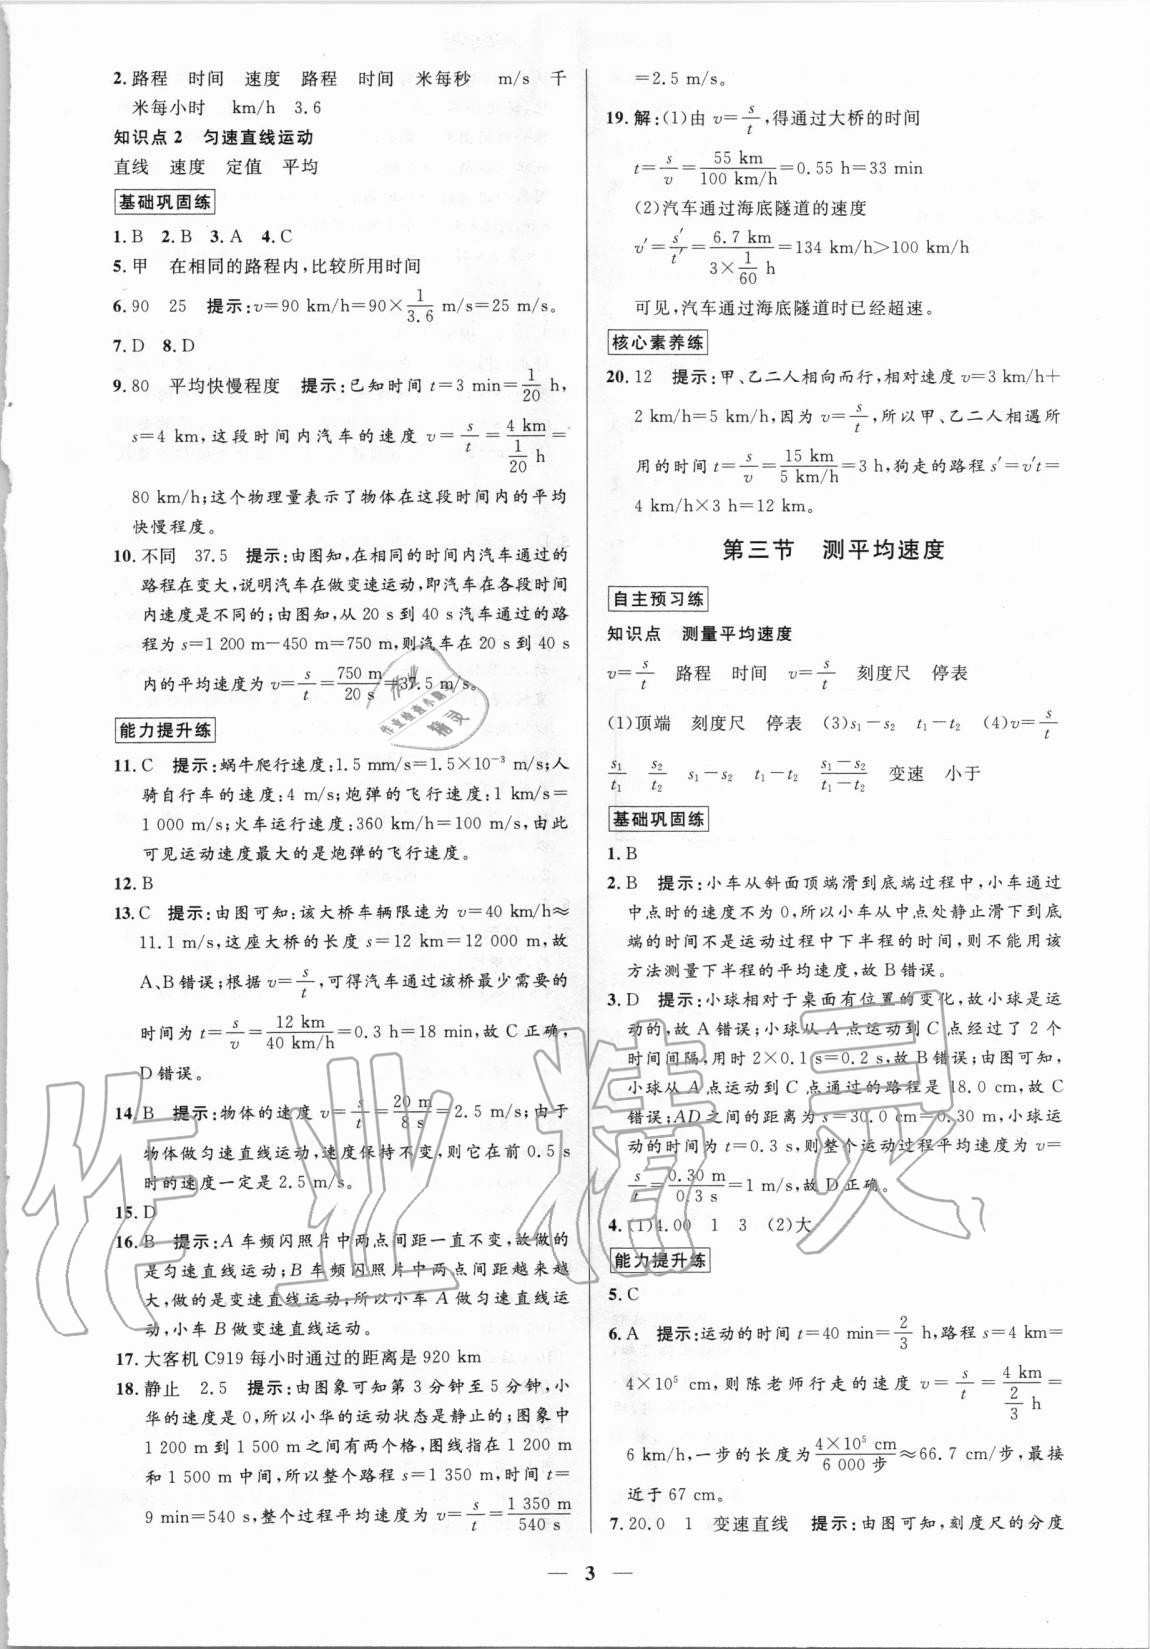 2. 路程　时间　速度　路程　时间　米每秒　m/s　千
米每小时　km/h　3.6
知识点 2　匀速直线运动
直线　速度　定值　平均
基础巩固练
1. B　2. B　3. A　4. C
5. 甲　在相同的路程内,比较所用时间
6. 90　25　提示:v=90 km/h=90×1/3.6 m/s=25 m/s。
7. D　8. D
9. 80　平均快慢程度　提示:已知时间 t=3 min=1/20 h,
s=4 km,这段时间内汽车的速度 v=s/t=4 km/(1/20 h)=
80 km/h;这个物理量表示了物体在这段时间内的平均
快慢程度。
10. 不同　37.5　提示:由图知,在相同的时间内汽车通过的
路程在变大,说明汽车在做变速运动,即汽车在各段时间
内速度是不同的;由图知,从 20 s 到 40 s 汽车通过的路
程为 s=1 200 m—450 m=750 m,则汽车在 20 s 到 40 s
内的平均速度为 v=s/t=750 m/20 s=37.5 m/s。
能力提升练
11. C　提示:蜗牛爬行速度:1.5 mm/s=1.5×10⁻³ m/s;人
骑自行车的速度:4 m/s;炮弹的飞行速度:1 km/s=
1 000 m/s;火车运行速度:360 km/h=100 m/s,由此
可见运动速度最大的是炮弹的飞行速度。
12. B
13. C　提示:由图可知:该大桥车辆限速为 v=40 km/h≈
11.1 m/s,这座大桥的长度 s=12 km=12 000 m,故
A、B 错误;根据 v=s/t,可得汽车通过该桥最少需要的
时间为 t=s/v=12 km/40 km/h=0.3 h=18 min,故 C 正确,
D 错误。
14. B　提示:物体的速度 v=s/t=20 m/8 s=2.5 m/s;由于
物体做匀速直线运动,速度保持不变,则它在前 0.5 s
时的速度一定是 2.5 m/s。
15. D
16. B　提示:A 车频闪照片中两点间距一直不变,故做的
是匀速直线运动;B 车频闪照片中两点间距越来越
大,做的是变速直线运动;所以小车 A 做匀速直线运
动,小车 B 做变速直线运动。
17. 大客机 C919 每小时通过的距离是 920 km
18. 静止　2.5　提示:由图象可知第 3 分钟至 5 分钟,小
华的速度是 0,所以小华的运动状态是静止的;图象中
1 200 m 到 1 500 m 之间有两个格,图线指在 1 200 m
和 1 500 m 中间,所以整个路程 s=1 350 m,时间 t=
9 min=540 s,整个过程平均速度为 v=s/t=1 350 m/540 s
=2.5 m/s。
19. 解:(1)由 v=s/t,得通过大桥的时间
t=s/v=55 km/100 km/h=0.55 h=33 min
(2)汽车通过海底隧道的速度
v′=s′/t′=6.7 km/(3×1/60 h)=134 km/h>100 km/h
可见,汽车通过海底隧道时已经超速。
核心素养练
20. 12　提示:甲、乙二人相向而行,相对速度 v=3 km/h+
2 km/h=5 km/h,因为 v=s/t,所以甲、乙二人相遇所
用的时间 t=s/v=15 km/5 km/h=3 h,狗走的路程 s′=v′t=
4 km/h×3 h=12 km。
第三节　测平均速度
自主预习练
知识点　测量平均速度
v=s/t　路程　时间　v=s/t　刻度尺　停表
(1)顶端　刻度尺　停表　(3)s₁—s₂　t₁—t₂　(4)v=s/t
s₁/t₁　s₂/t₂　s₁—s₂　t₁—t₂　(s₁—s₂)/(t₁—t₂)　变速　小于
基础巩固练
1. B
2. B　提示:小车从斜面顶端滑到底端过程中,小车通过
中点时的速度不为 0,所以小车从中点处静止滑下到底
端的时间不是运动过程中下半程的时间,则不能用该
方法测量下半程的平均速度,故 B 错误。
3. D　提示:小球相对于桌面有位置的变化,故小球是运
动的,故 A 错误;小球从 A 点运动到 C 点经过了 2 个
时间间隔,用时 2×0.1 s=0.2 s,故 B 错误;由图可知,
小球从 A 点运动到 C 点通过的路程是 18.0 cm,故 C
错误;AD 之间的距离为 s=30.0 cm=0.30 m,小球运
动的时间为 t=0.3 s,则整个运动过程平均速度为 v=
s/t=0.30 m/0.3 s=1 m/s,故 D 正确。
4. (1)4.00　1　3　(2)大
能力提升练
5. C
6. A　提示:运动的时间 t=40 min=2/3 h,路程 s=4 km=
4×10⁵ cm,则陈老师行走的速度 v=s/t=4 km/(2/3 h)=
6 km/h,一步的长度为4×10⁵ cm/6 000 步≈66.7 cm/步,最接
近于 67 cm。
7. 20.0　1　变速直线　提示:由图可知,刻度尺的分度
— 3 —
作业检查小助手
精灵
作业精灵